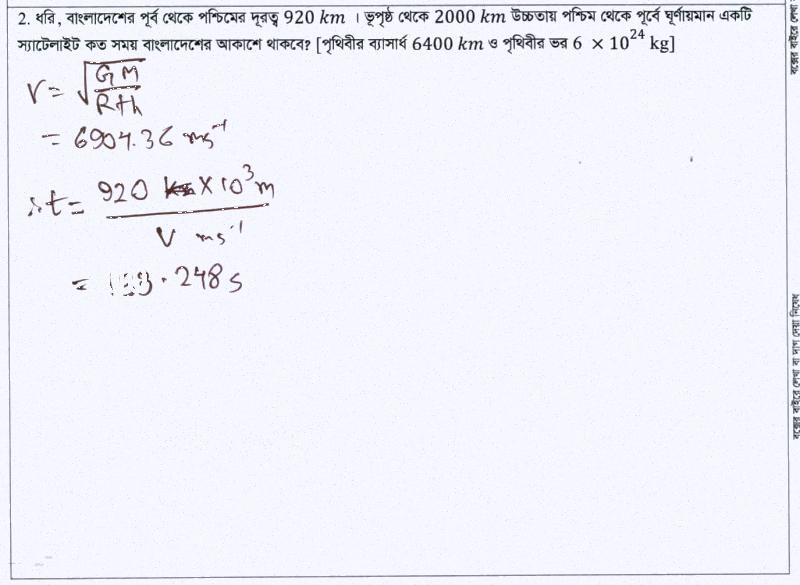 2. ধরি, বাংলাদেশের পূর্ব থেকে পশ্চিমের দূরত্ব 920 km । ভূপৃষ্ঠ থেকে 2000 km উচ্চতায় পশ্চিম থেকে পূর্বে ঘূর্ণায়মান একটি
স্যাটেলাইট কত সময় বাংলাদেশের আকাশে থাকবে? [পৃথিবীর ব্যাসার্ধ 6400 km ও পৃথিবীর ভর 6 × 10^24 kg]
V = √(GM / R+h)
= 6904.36 ms^-1
∴ t = 920 × 10^3 m / V ms^-1
= .248 s
বক্সের বাইরে লেখা বা দাগ দেয়া নিষেধ
বক্সের বাইরে লেখা